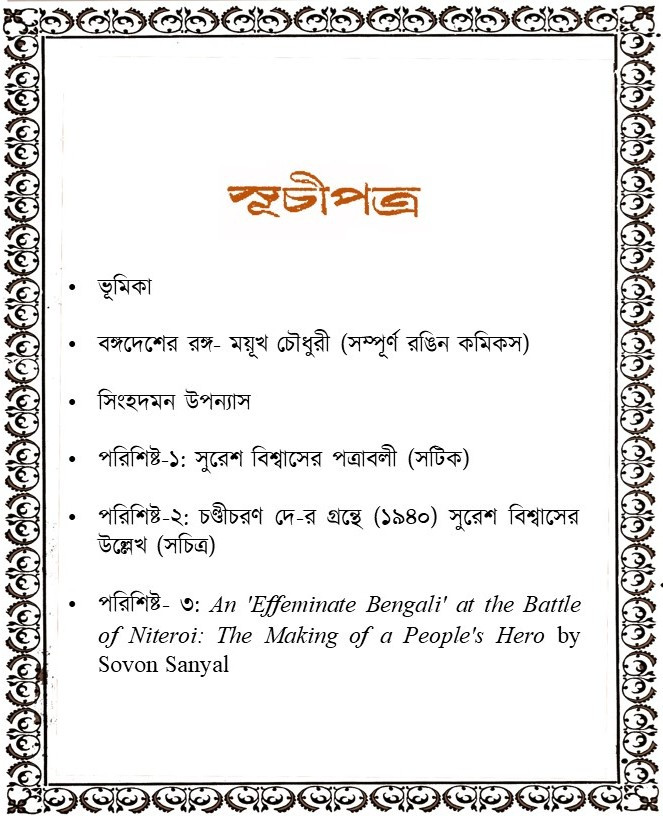 সূচীপত্র
• ভূমিকা
• বঙ্গদেশের রঙ্গ- ময়ূখ চৌধুরী (সম্পূর্ণ রঙিন কমিকস)
• সিংহদমন উপন্যাস
• পরিশিষ্ট-১: সুরেশ বিশ্বাসের পত্রাবলী (সটিক)
• পরিশিষ্ট-২: চণ্ডীচরণ দে-র গ্রন্থে (১৯৪০) সুরেশ বিশ্বাসের
উল্লেখ (সচিত্র)
• পরিশিষ্ট- ৩: An 'Effeminate Bengali' at the Battle
of Niteroi: The Making of a People's Hero by
Sovon Sanyal